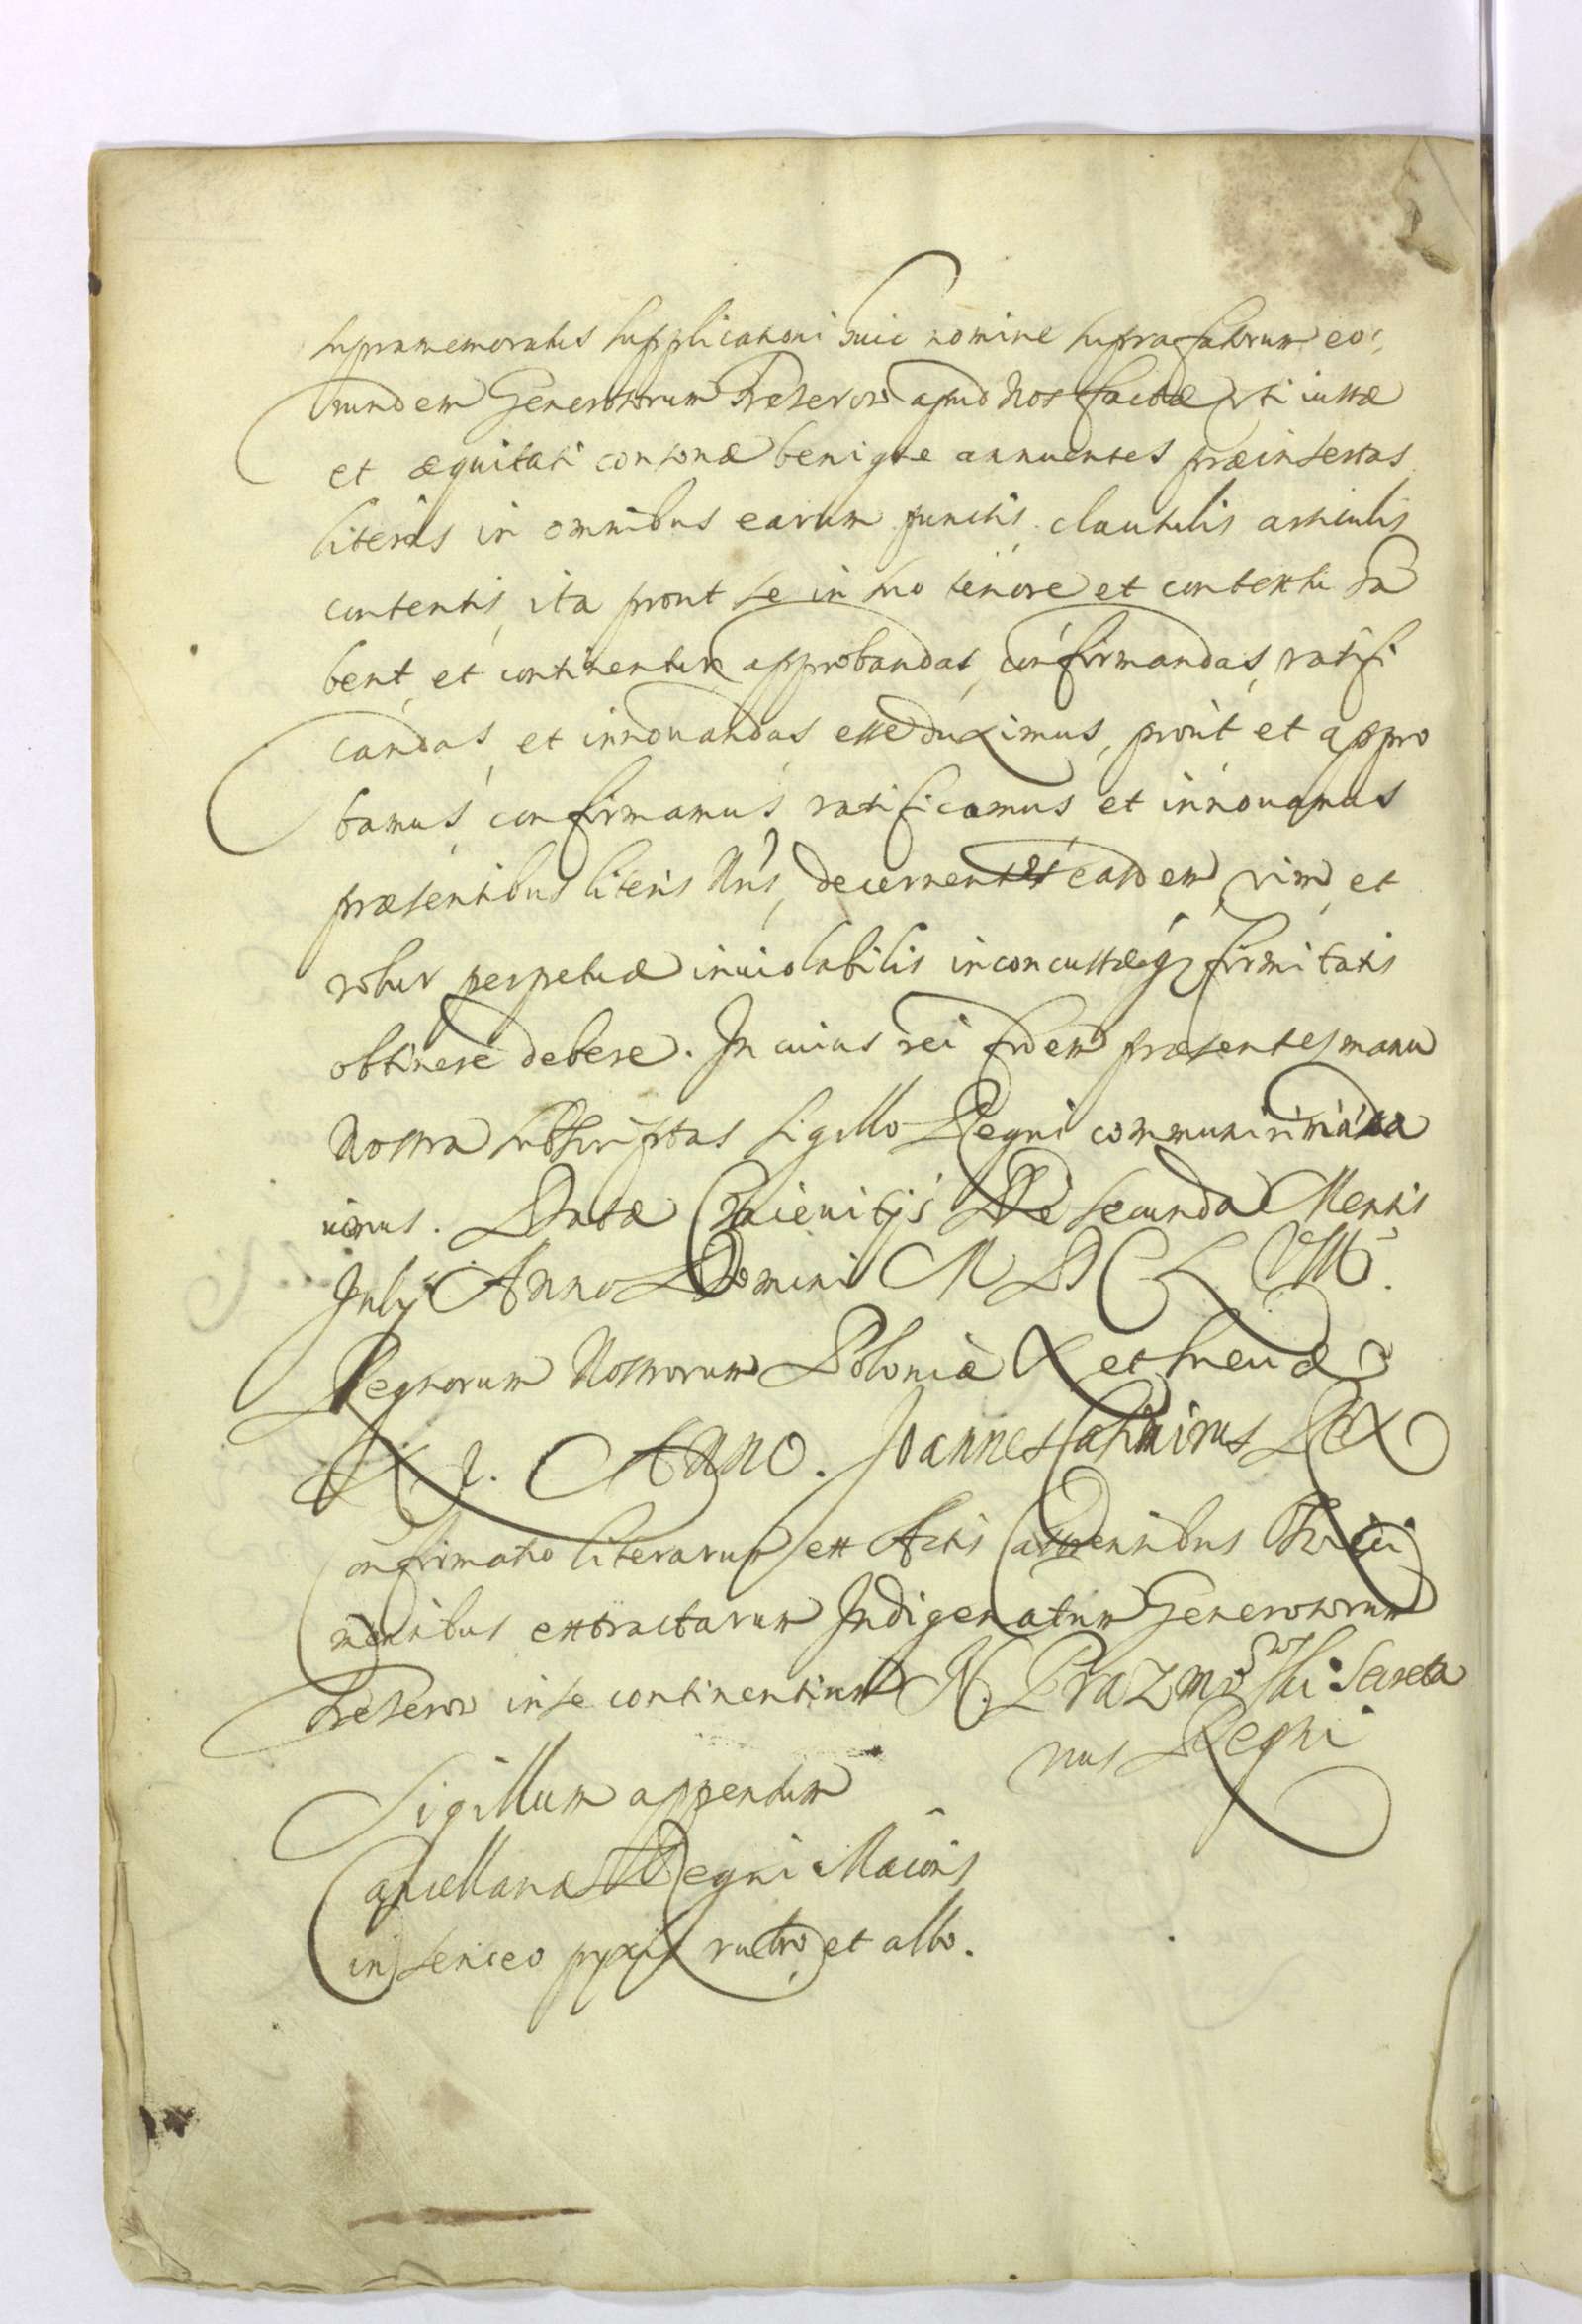 supramemoratus supplicationi huic nomine suprafatorum eo,
rundem Generosorum Treterow apud Nos factæ, vti iustæ
et æquitati consonæ benigne annuentes præinsertas
literas in omnibus earum punctis, clausulis articulis
contentis, ita prout se in suo tenore et contextu ha
bent, et continentur, approbandas, confirmandas, ratifi
candas, et innouandas esse duximus, prout et appro
bamus, confirmamus, ratificamus et innouamus
præsentibus literis Nris, decernentes easdem, vim, et
robur perpetuæ inuiolabilis inconcussæq firmitatis
obtinere debere. In cuius rei fidem præsentes manu
Nostra subscriptas sigillo Regni communiri
uimus. Datæ Die secunda Mensis
July Anno Domini M D C L VIII.
Regnorum Nostrorum Poloniæ X et Sueciæ
XI. ANNO. Joannes Casimirus Rex
Confirmatio literarum ex Actis Castrensibus
mensibus extractarum Indigenatum Generosorum
Treterow in se continentium N. Prazmowski Secreta
rius Regni
Sigillum appensum
Cancellariæ Regni Maioris
in sericeo rubro et albo.